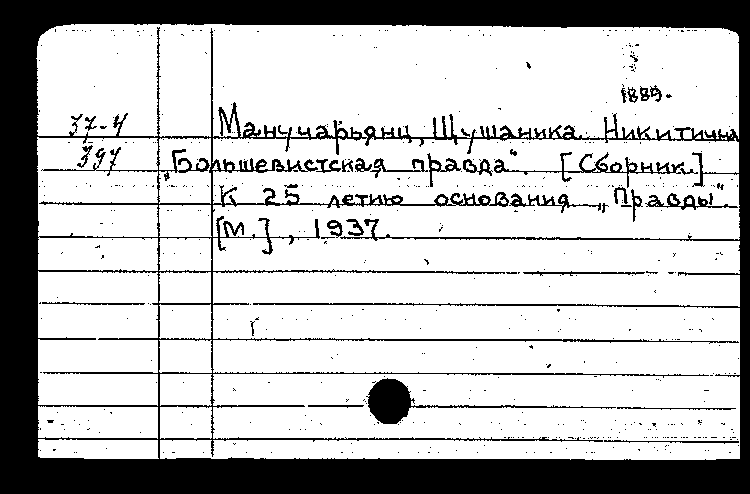 1889.
37-4 Манучарьянц, Щушаника Никитична
397 „Большевистская правда". [Сборник.]
К 25 летию основания „Правды".
[М.], 1937.